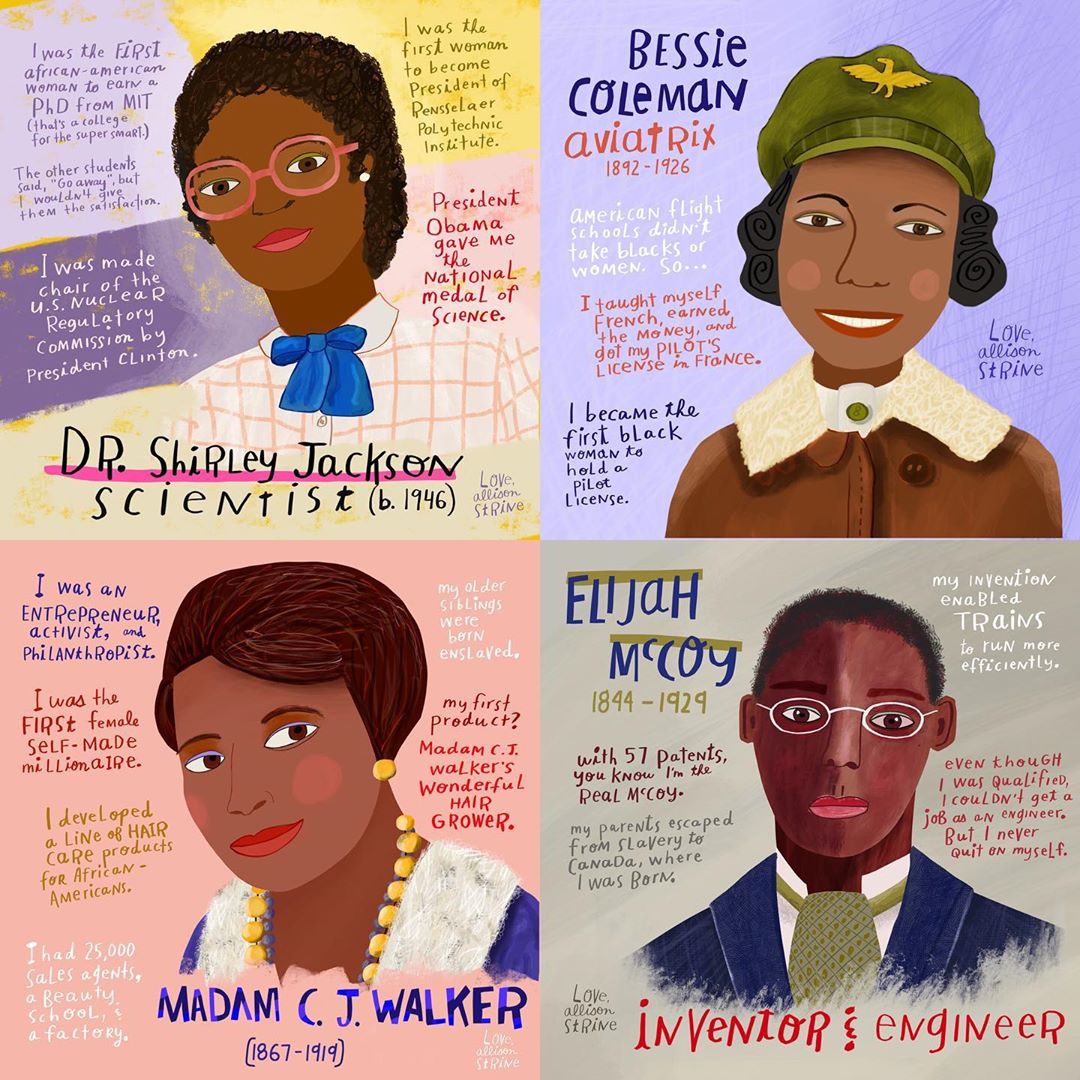 I was the FIRST
african-american
woman to earn a
PhD from MIT
(that's a college
for the super smart.)
The other students
said, "Go away", but
I wouldn't give
them the satisfaction.
I was made
chair of the
U.S. Nuclear
Regulatory
Commission by
President Clinton.
I was the
first woman
to become
President of
Rensselaer
Polytechnic
Institute.
President
Obama
gave me
the
National
medal of
Science.
DR. Shirley Jackson
scientist (b. 1946)
Love,
allison
Strine
Bessie
Coleman
aviatrix
1892-1926
American flight
schools didn't
take blacks or
women. So...
I taught myself
French, earned
the money, and
got my PILOT'S
License in France.
I became the
first black
woman to
hold a
pilot
License.
Love,
allison
Strine
I was an
Entrepreneur,
activist, and
Philanthropist.
I was the
FIRST female
self-made
millionaire.
I developed
a Line of HAIR
care products
for African-
Americans.
I had 25,000
sales agents,
a beauty
school, &
a factory.
my older
siblings
were
born
enslaved.
my first
product?
Madam C.J.
walker's
Wonderful
HAIR
GROWER.
MADAM C. J. WALKER
(1867-1919)
Love,
allison
Strine
Elijah
McCoy
1844-1929
with 57 patents,
you know I'm the
Real McCoy.
my parents escaped
from slavery to
Canada, where
I was born.
my invention
enabled
Trains
to run more
efficiently.
even though
I was qualified,
I couldn't get a
job as an engineer.
But I never
quit on myself.
Love,
allison
Strine
inventor & engineer